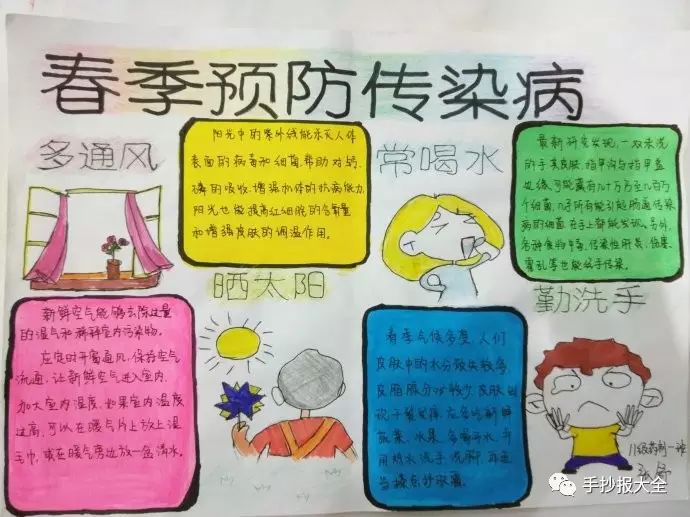 春季预防传染病
多通风
阳光中的紫外线能杀灭人体
表面的病毒和细菌,帮助对钙、
磷的吸收,增强机体的抗病能力,
阳光也能提高红细胞的含氧量
和增强皮肤的调温作用。
常喝水
最新研究发现,一双未洗
的手其皮肤、指甲沟与指甲盖
也缘,可能藏有几十万乃至几百万
个细菌,几乎所有能引起肠道传染
病的细菌在手上都能发现。另外,
各种食物中毒、传染性肝炎、伤寒、
霍乱等也能经手传染。
晒太阳
勤洗手
新鲜空气能够去除过量
的湿气和稀释室内污染物。
应定时开窗通风,保持空气
流通,让新鲜空气进入室内,
加大室内湿度,如果室内温度
过高,可以在暖气片上放上湿
毛巾,或在暖气旁边放一盆清水。
春季气候多变,人们
皮肤中的水分散失较多,
皮脂腺分泌较少,皮肤
应多吃新鲜
蔬菜、水果,多喝开水,并
用热水洗手、洗脚,再适
当擦点护肤霜。
手抄报大全